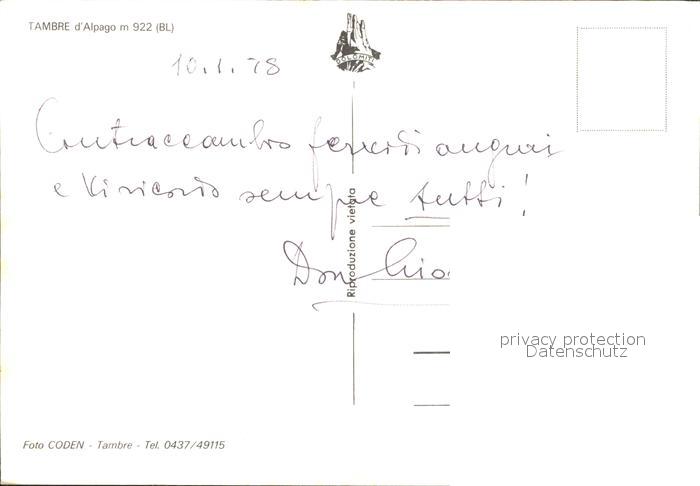 TAMBRE d'Alpago m 922 (BL)
DOLOMITI
10.1.78
Contraccambio fervidi auguri
e Vi ricordo sempre tutti!
Don
Riproduzione vietata
privacy protection
Datenschutz
Foto CODEN - Tambre - Tel. 0437/49115